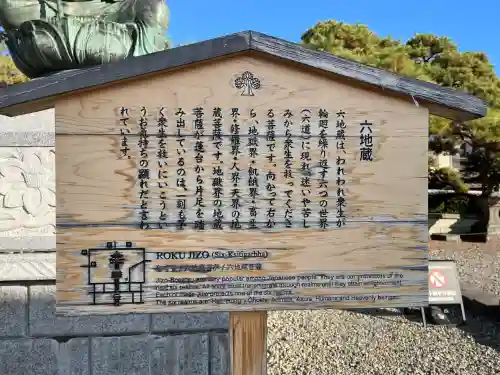 六地蔵
六地蔵は、われわれ衆生が
輪廻を繰り返す六つの世界
(六道)に現れ迷いや苦し
みから衆生を救ってくださ
る菩薩です。向かって右か
ら、地獄界・餓鬼界・畜生
界・修羅界・人界・天界の地
蔵菩薩です。地獄界の地蔵
菩薩が蓮台から片足を踏
み出しているのは、一刻も早
く衆生を救いにいこうとい
うお気持ちの顕れだといわ
れています。
ROKU JIZO (Six Ksitigarbha)
Jizo-Bosatsu are very popular among Japanese people. They are